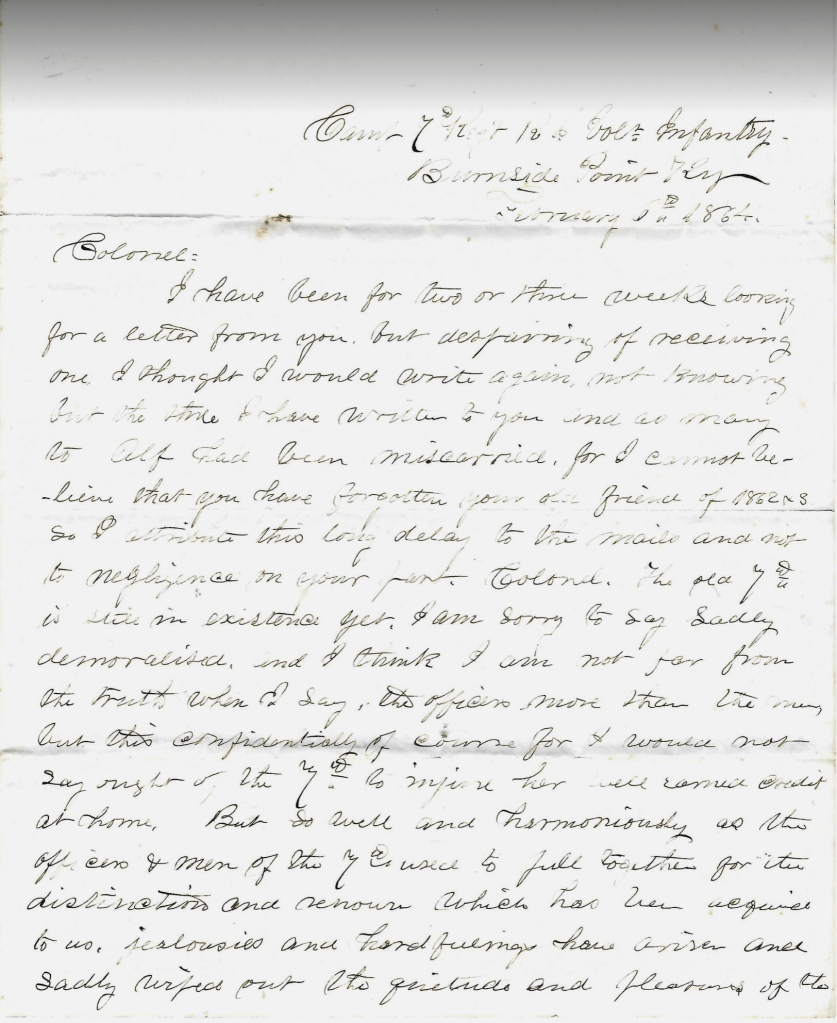 Camp 7th Regt R I Volt Infantry.
Burnside Point Ky
February 1864.
Colonel:
I have been for two or three weeks looking
for a letter from you. but despairing of receiving
one, I thought I would write again, not knowing
but the three I have written to you and as many
to Alf had been miscarried, for I cannot be-
-lieve that you have forgotten your old friend of 1862 & 3
So I attribute this long delay to the mails and not
to negligence on your part. Colonel. The old 7th
is still in existence yet, I am sorry to say Sadly
demoralised, and I think I am not far from
the truth when I say, the officers more than the men,
but this confidentially of course for I would not
say ought of the 7th to injure her well earned credit
at home. But so well and harmoniously as the
officers & men of the 7th used to pull together for the
distinction and renown which has been acquired
to us, jealousies and hardfeelings have arisen and
Sadly wiped out the quietude and pleasures of the